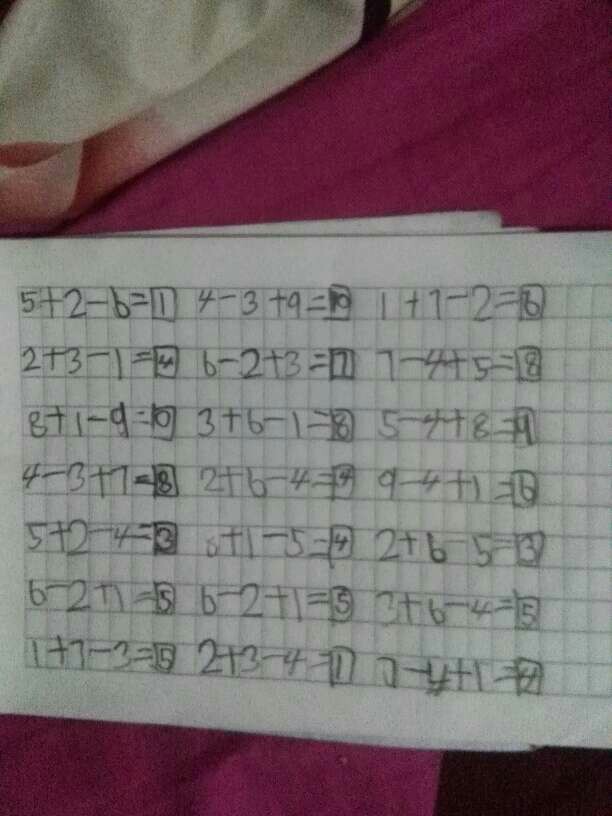 5+2-6=1 4-3+9=10 1+7-2=6
2+3-1=4 6-2+3=7 7-4+5=8
8+1-9=0 3+6-1=8 5-4+8=9
4-3+7=8 2+6-4=4 9-4+1=6
5+2-4=3 8+1-5=4 2+6-5=3
6-2+1=5 6-2+1=5 3+6-4=5
1+7-3=5 2+3-4=1 7-4+1=4